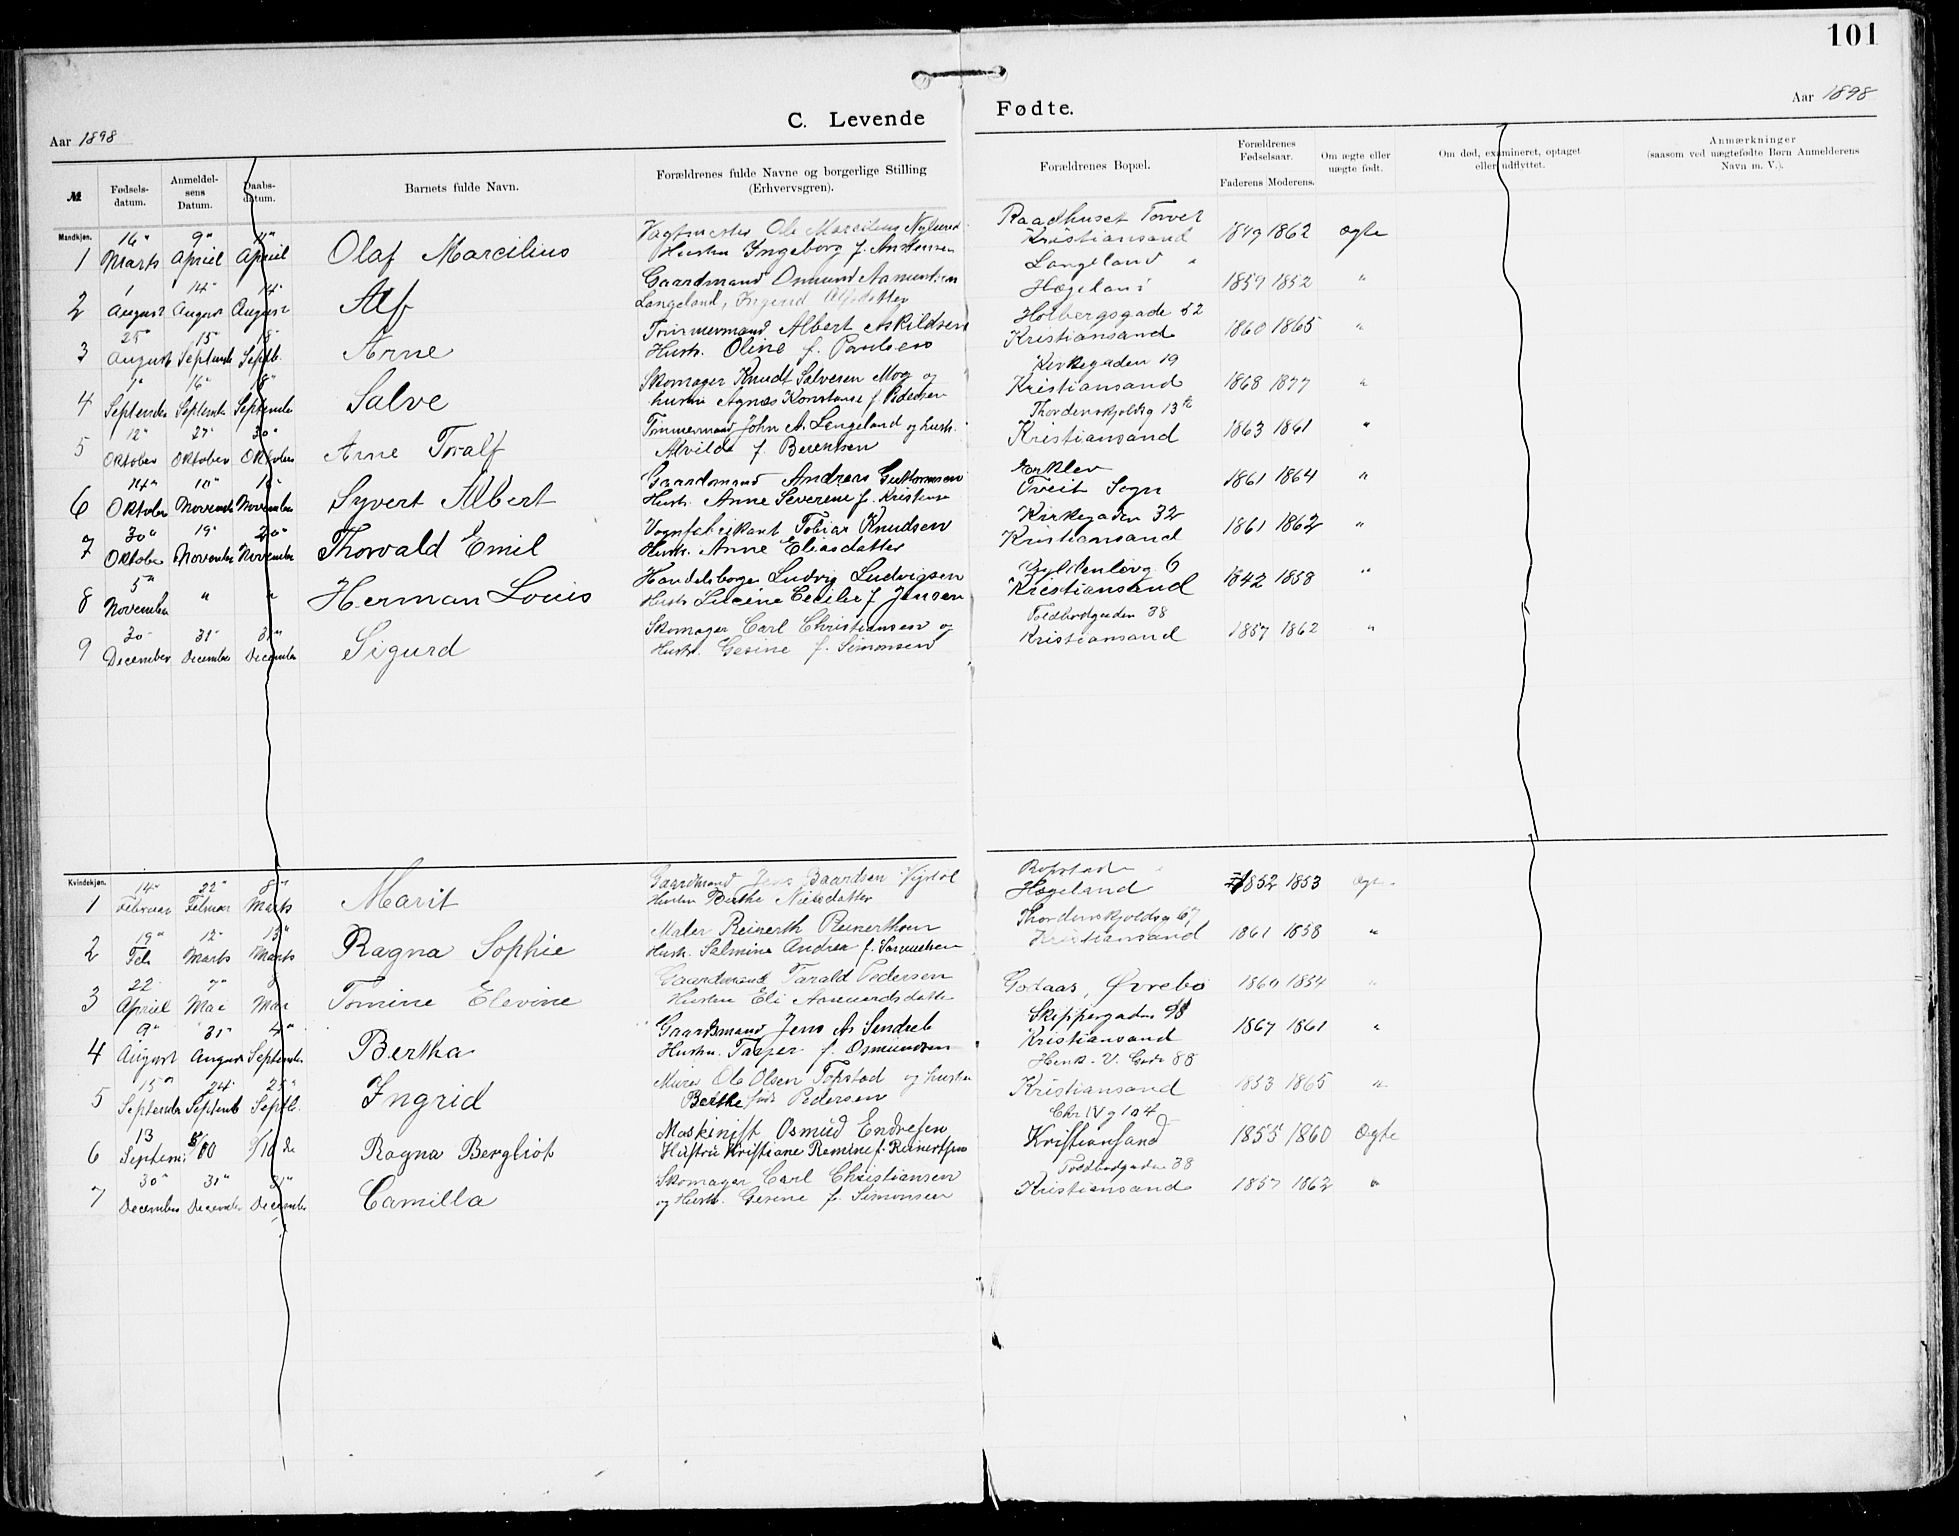 101
C. Levende Fødte.
Aar 1898
Aar 1898
№
Fødsels-datum.
Anmeldelsens Datum.
Daabs-datum.
Barnets fulde Navn.
Forældrenes fulde Navne og borgerlige Stilling (Erhvervsgren).
Forældrenes Bopæl.
Forældrenes Fødselsaar.
Faderens Moderens.
Om ægte eller uægte født.
Om død, examineret, optaget eller udflyttet.
Anmærkninger (saasom ved uægtefødte Børn Anmelderens Navn m. V.).
Mandkjøn.
16" 9" 11" Vagtmester Ole Marcilius Nylund Raadhuset Torvet
1 Marts April April Olaf Marcilius Hustru Ingeborg f. Kristiansand 1849 1862 Ægte
1 14" 14" Gaardmand Osmund Aamundsen Langeland "
2 August August August Alf Langeland, Ingerid Alfsdatter Hægeland 1859 1852 "
25" 15" 18" Tømmermand Albert Askildsen Holbergsgade 52
3 August Septemb Septb. Arne Hustr. Oline f. Paulsen Kristiansand 1860 1865 "
1" 16" 18" Skomager Knudt Salvesen Mog og Kirkegaden 19
4 September Septembr September Salve hustru Agnes Konstanse f Pedersen Kristiansand 1868 1877 "
12" 27" 30" Tømmermand John A. Langeland og hustr. Thordenskjoldsg 13
5 Oktober Oktober Oktober Arne Toralf Alvilde f. Berentsen Kristiansand 1863 1861 "
Gaardsmand Andreas Guttormsen
6 Oktober Novemb November Syvert Albert Hustr. Anne Severene f. Kristense Tveit Sogn 1861 1864 "
30" 19" 20" Vognfabrikant Tobias Knudsen Kirkegaden 32
7 Oktober November November Thorvald Emil Hustr. Anne Eliasdatter Kristiansand 1861 1862 "
5" Handelsborger Ludvig Ludvigsen Gyldenløvg. 6
8 November " " Herman Louis Hustr Lucine Cecilie f Jensen Kristiansand 1842 1858 "
30" 31" 31" Skomager Carl Christiansen og Toldbodgaden 38
9 December December December Sigurd Hustr. Gesine f. Simonsen Kristiansand 1857 1862 "
Kvindekjøn.
14" 22" 8" Gaardmand Jens Baardsen Ropstad
1 Februar Februar Marts Marit Hustru Berthe Nielsdatter Hægeland 1852 1853 Ægte
19" 12" 13" Maler Reinerth Reinerthsen Thordenskjoldsg 67
2 Feb Marts Marts Ragna Sophie Hustr. Salmine Andrea f. Samuelsen Kristiansand 1861 1858 "
22 7" 8 Gaardmand Tarald Pedersen
3 April Mai Mai Tomine Elevine Hustru Eli Aanundsdatter Godaas, Øvrebø 1860 1854 "
9" 31" 4" Gaardsmand Jens As Sendreb Skippergaden 98
4 August August September Bertha Hustru. Tasper f. Osmundsen Kristiansand 1867 1861 "
15" 24" 25" Murer Ole Olsen Topstad og hustru Henk. V. Gade 88
5 September Septemb Septb. Ingrid Berthe født Pedersen Kristiansand 1853 1865 "
13 Maskinist Osmud Endresen Chr IV g 104
6 Septem: 9/10 de Ragna Bergliot Hustru Kristiane Ramine f. Reinertsen Kristiansand 1855 1860 Ægte
30" 31" 31" Skomager Carl Christiansen Toldbodgaden 38
7 December December December Camilla og Hustr. Gesine f. Simonsen Kristiansand 1857 1862 "